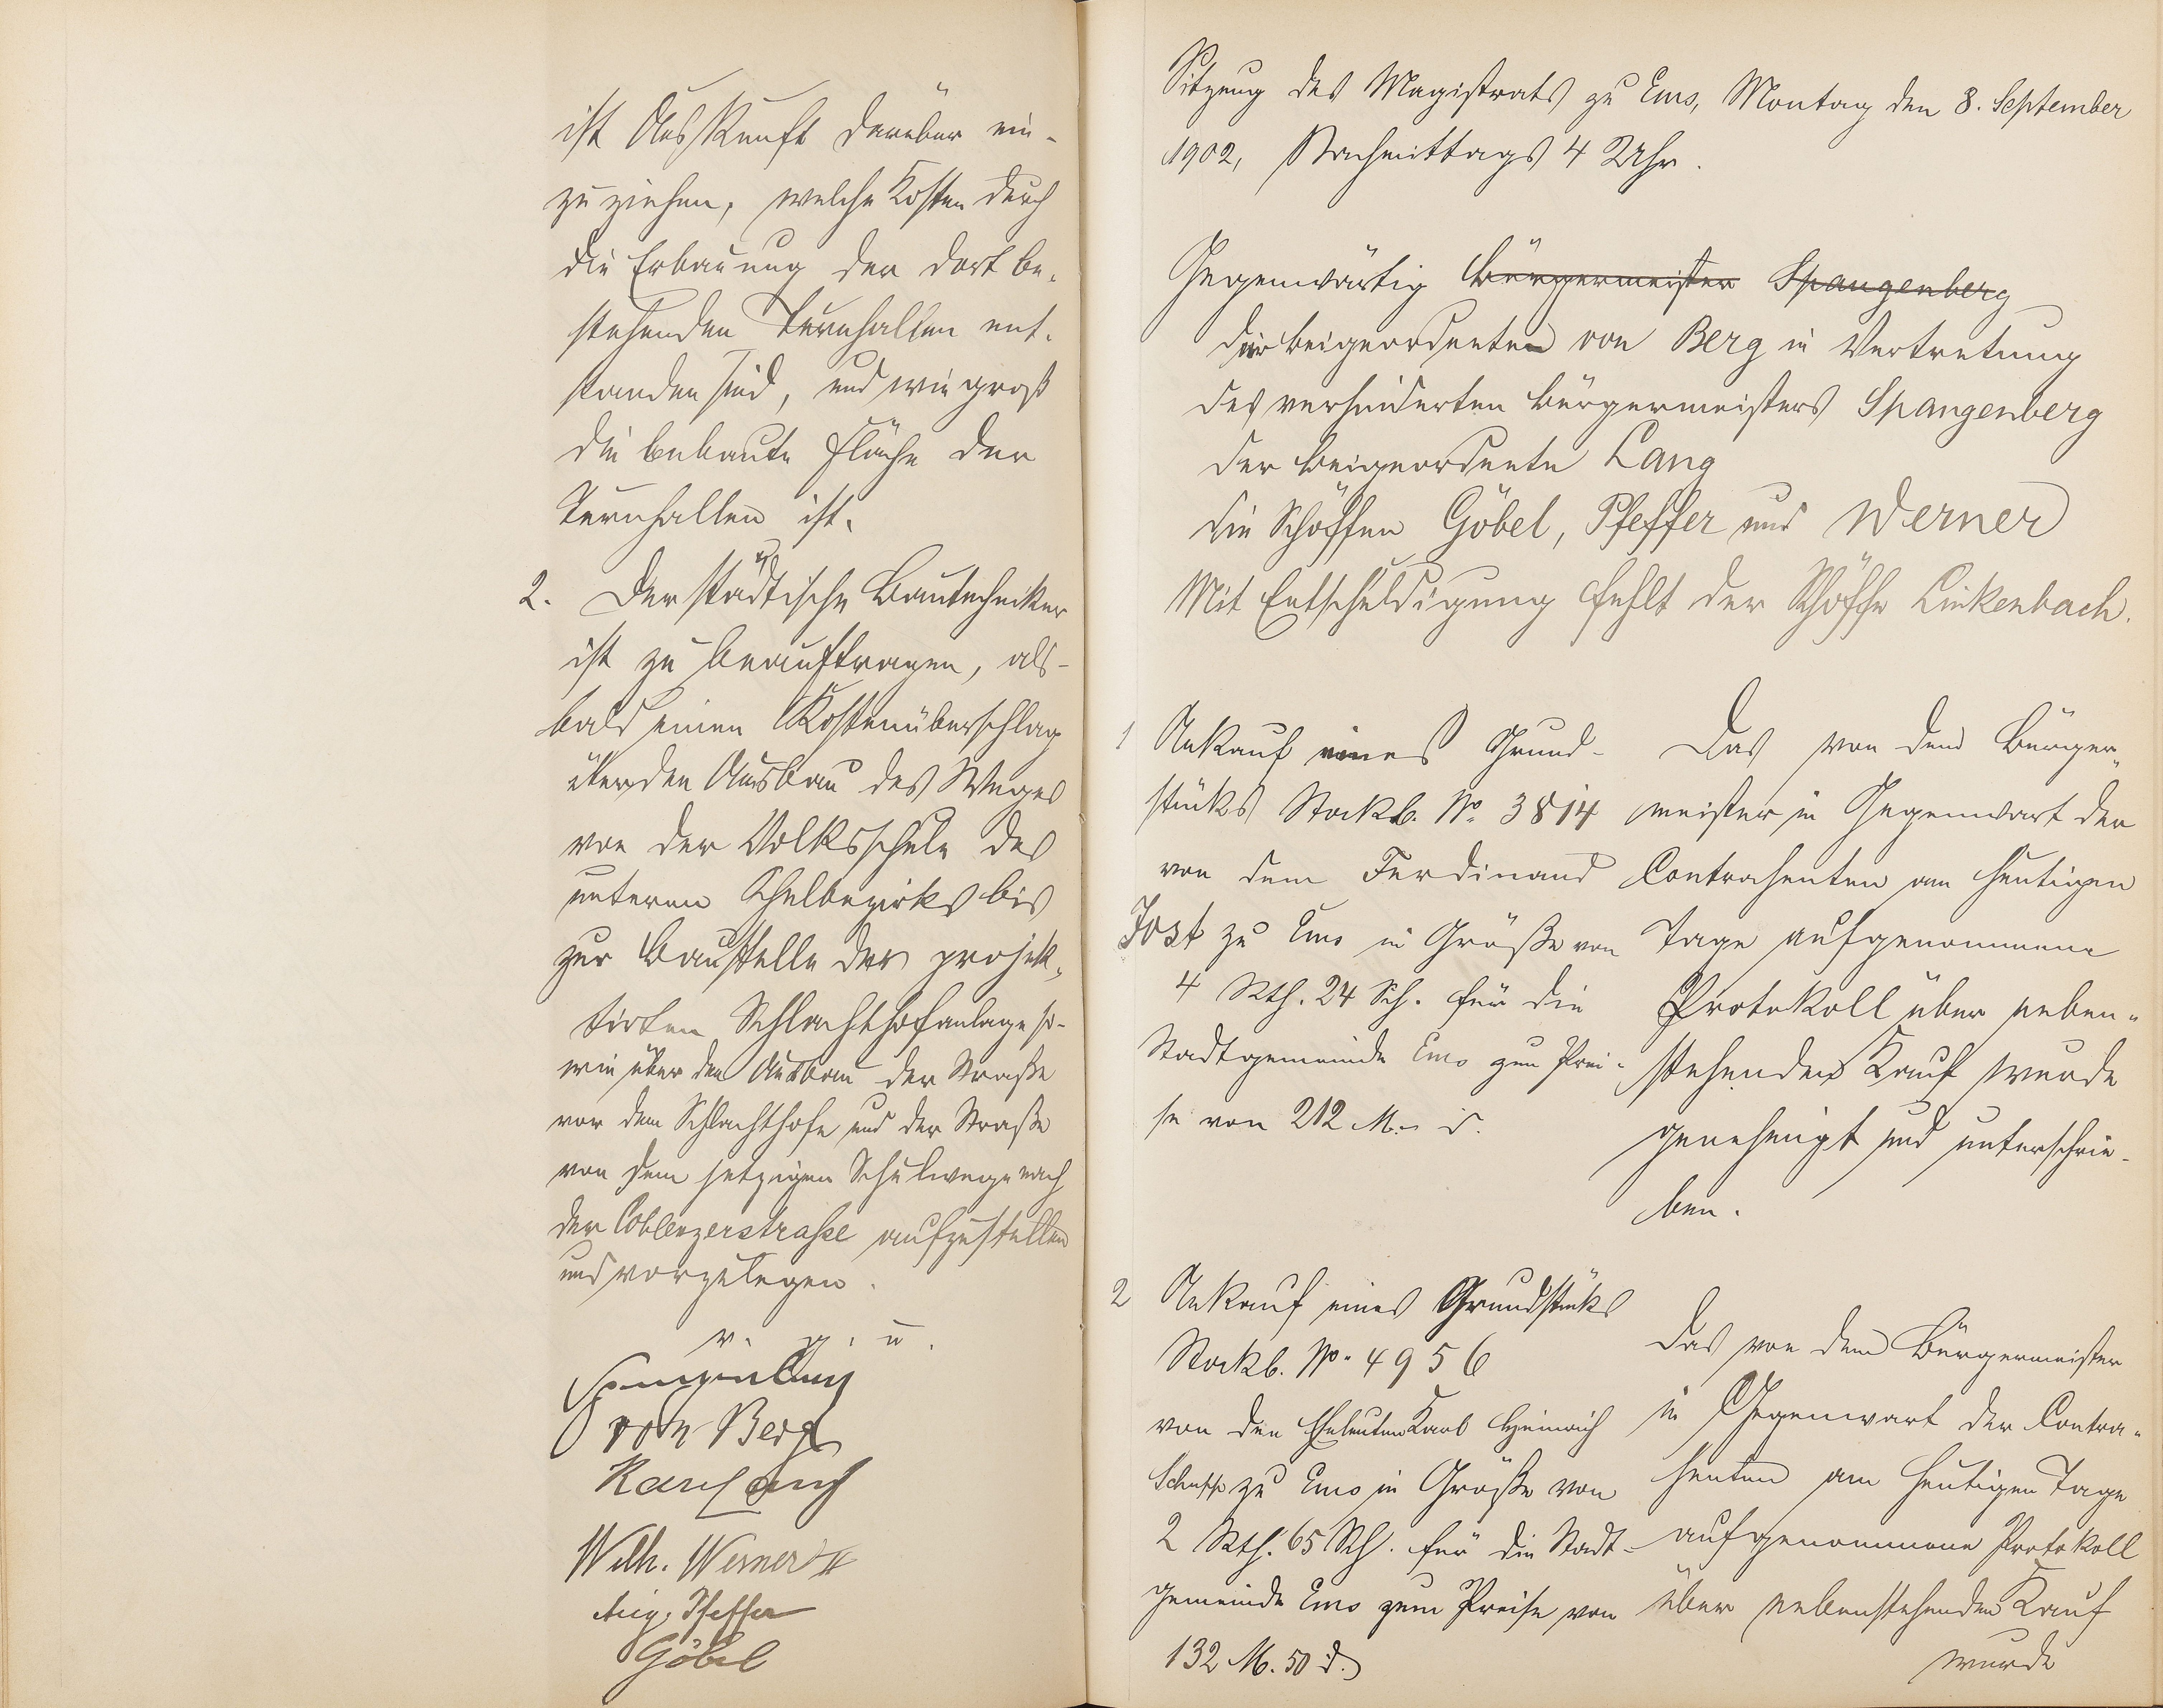 ist Auskunft darüber ein-
zuziehen, welche Kosten durch
die Erbauung der dort be-
stehenden Turnhallen ent-
standen sind, und wie groß
die bebaute Fläche der
Turnhallen ist.
2. Der städtische Bautechniker
ist zu beauftragen, als-
bald einen Kostenüberschlag
über den Ausbau des Weges
von der Volksschule des
unteren Schulbezirks bis
zur Baustelle der projek-
tirten Schlachthofanlage so-
wie über den Ausbau der Straße
vor dem Schlachthofe und der Straße
von dem jetzigen Schulwege nach
der Coblenzerstraße aufzustellen
und vorzulegen.
v. g. u.
Spangenberg
von Berg
Karl Lang
Wilh. Werner II
Aug. Pfeffer
Göbel
Sitzung des Magistrats zu Ems, Montag den 8. September
1902, Nachmittags 4 Uhr.
Gegenwärtig Bürgermeister Spangenberg
der Beigeordneten von Berg in Vertretung
des verhinderten Bürgermeisters Spangenberg
der Beigeordnete Lang
die Schöffen Göbel, Pfeffer und Werner
Mit Entschuldigung fehlt der Schöffe Linkenbach.
1 Ankauf eines Grund-
stüks Stockb. No. 3814
von dem Ferdinand
Jost zu Ems in Größe von
4 Rth. 24 Sch. für die
Stadtgemeinde Ems zum Prei-
se von 212 M. – d.
Das von dem Bürger-
meister in Gegenwart der
Contrahenten am heutigen
Tage aufgenommene
Protokoll über neben-
stehenden Kauf wurde
genehmigt und unterschrie-
ben.
2 Ankauf eines Grundstüks
Stockb. No. 4956
von den Eheleuten Karl Heinrich
Schupp zu Ems in Größe von
2 Rth. 65 Sch. für die Stadt-
gemeinde Ems zum Preise von
132 M. 50 d.
Das von dem Bürgermeister
in Gegenwart der Contra-
henten am heutigen Tage
aufgenommene Protokoll
über nebenstehenden Kauf
wurde